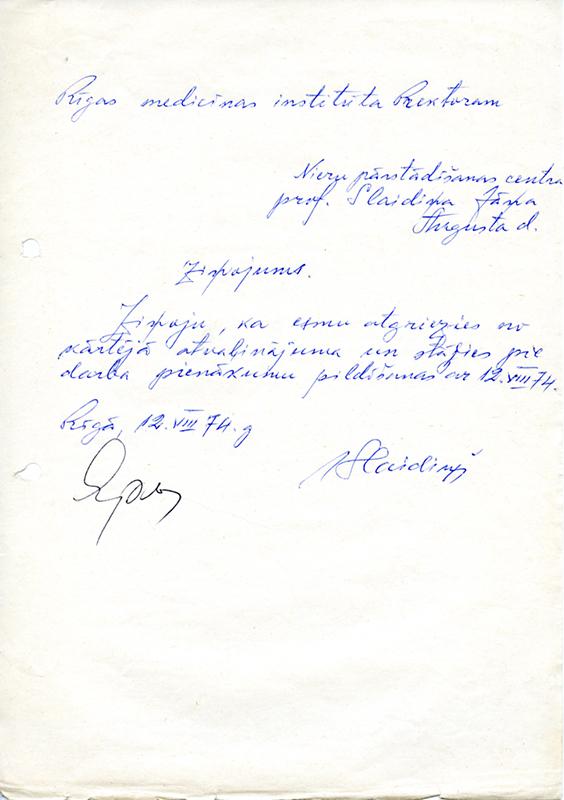 Rīgas medicīnas institūta Rektoram
Nieru pārstādīšanas centra
prof. Slaidiņa Jāņa
Augusta d.
Ziņojums.
Ziņoju, ka esmu atgriezies no
kārtējā atvaļinājuma un stājies pie
darba pienākumu pildīšanas ar 12.VIII 74.
Rīgā, 12.VIII 74.g
Slaidiņš